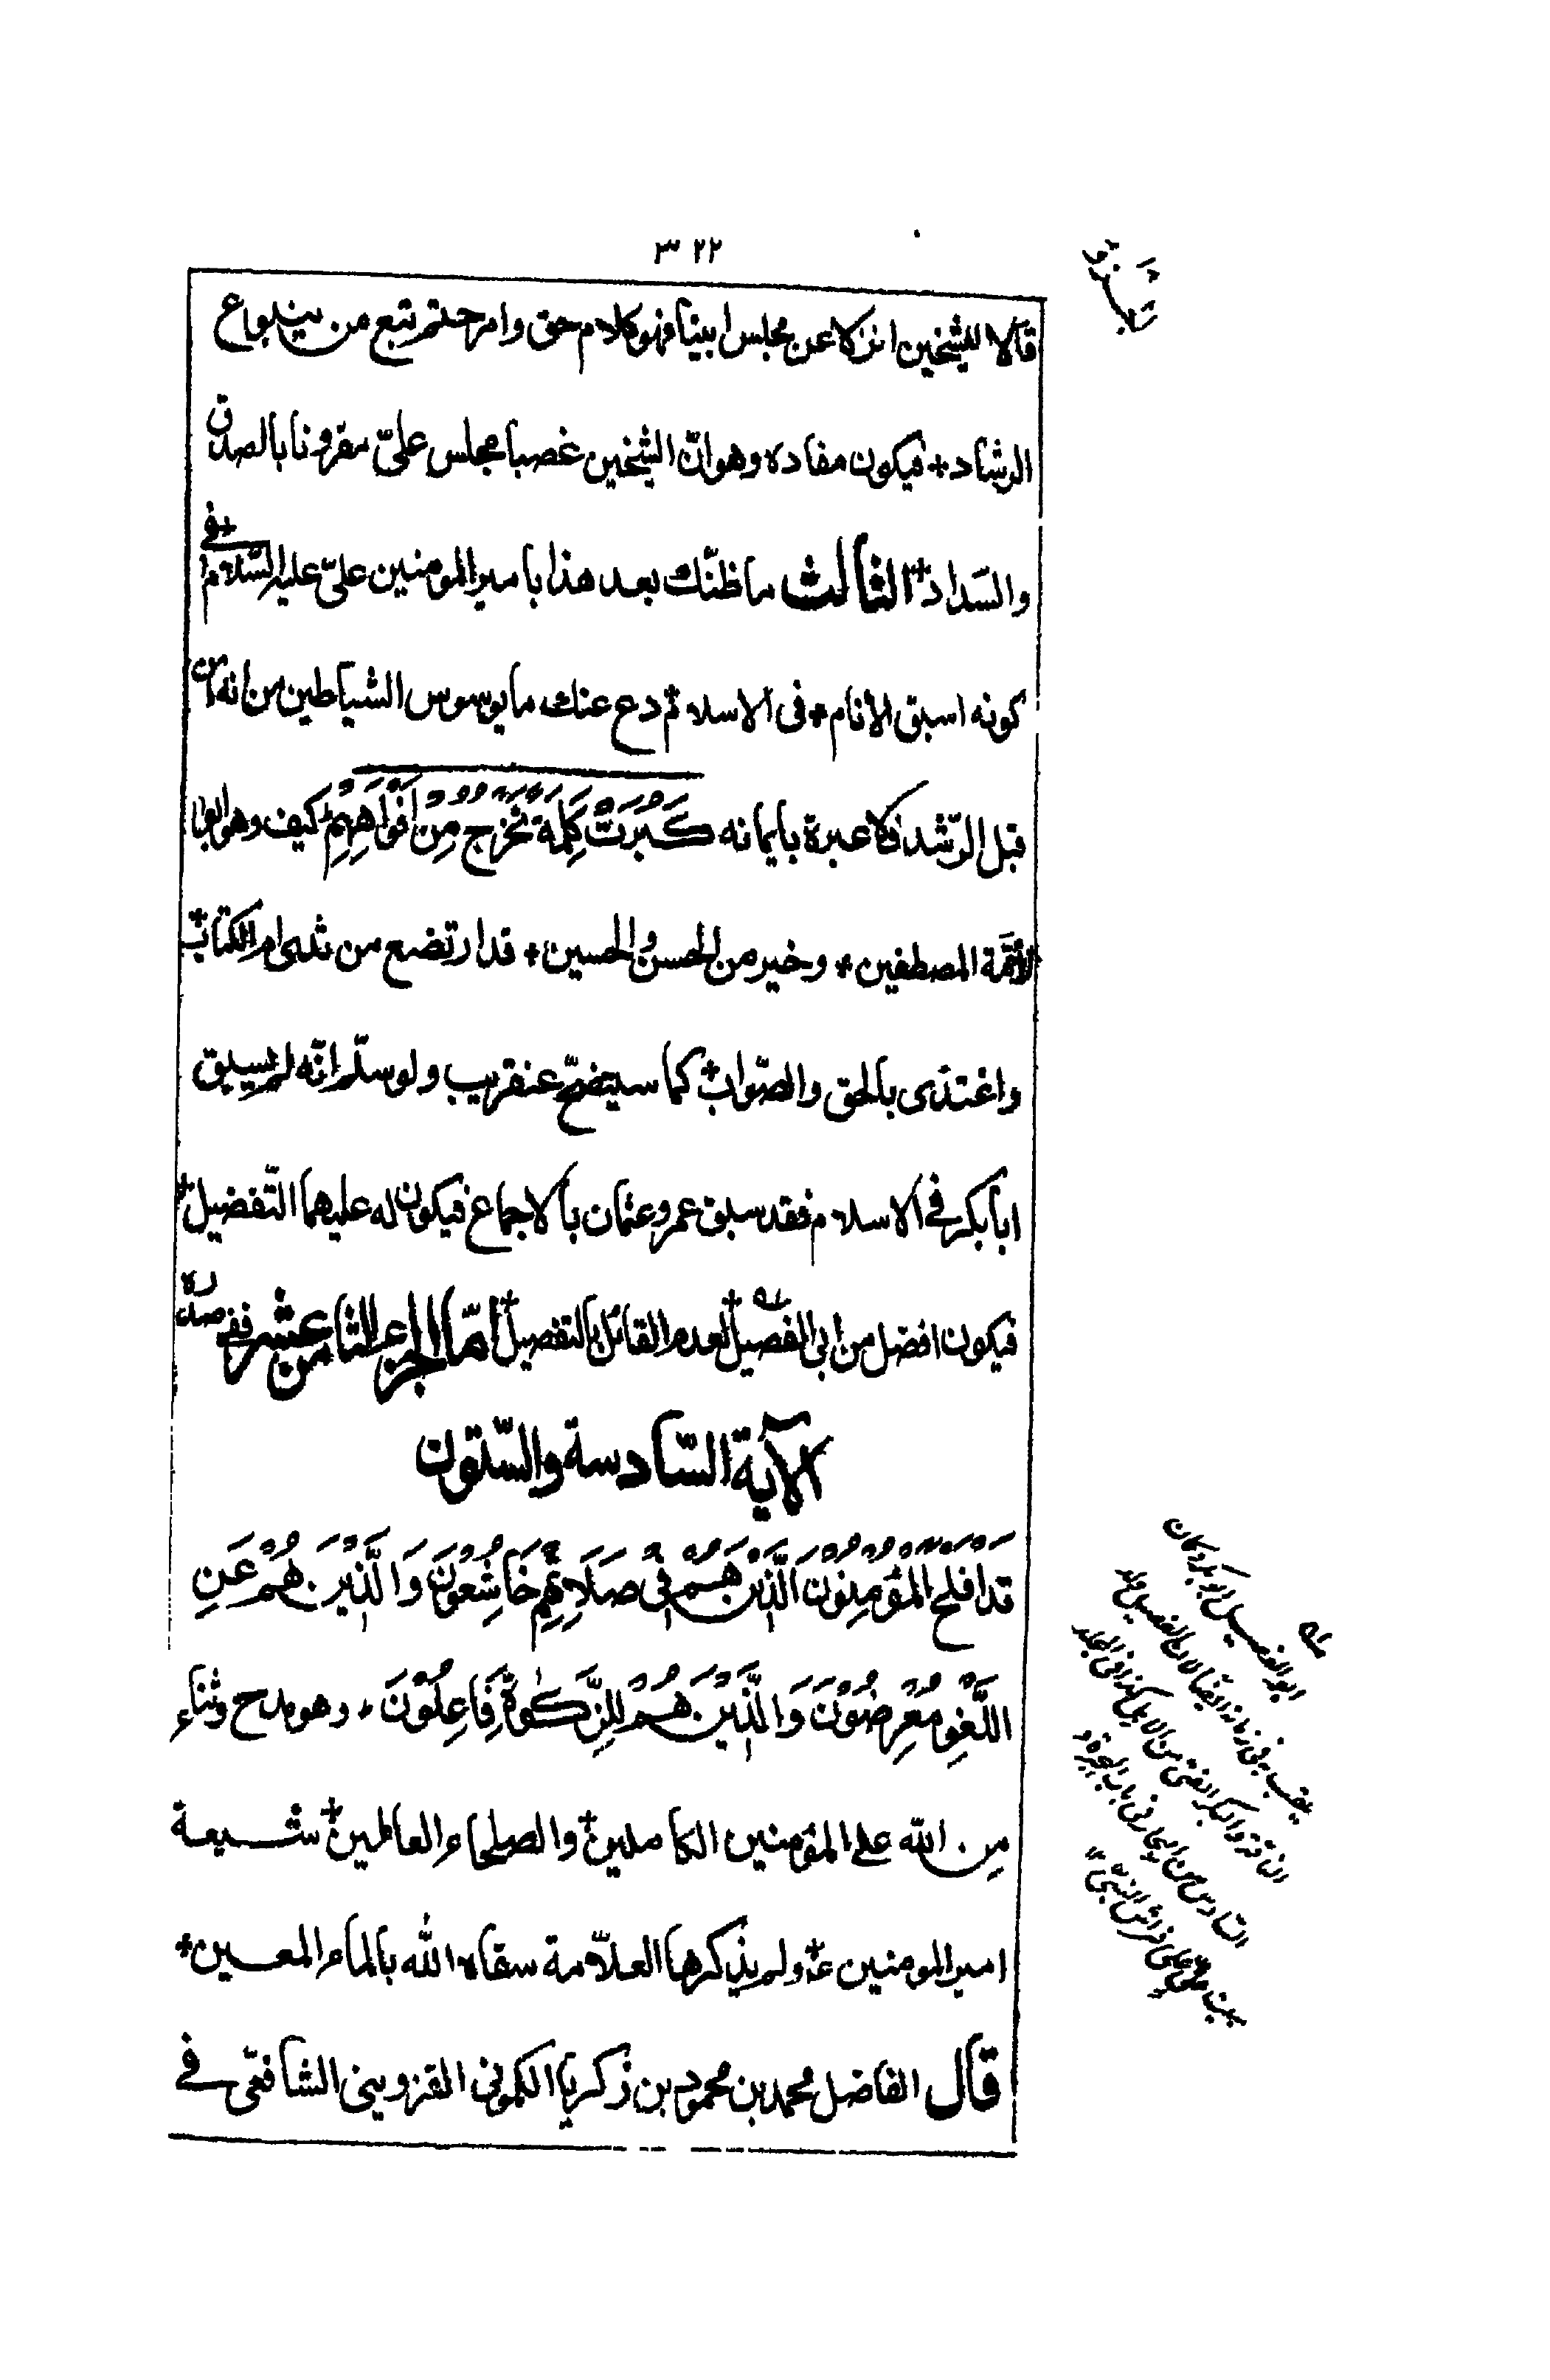 ٣٢٢
قالا للشيخين انزلا عن مجلس ابينا فهو كلام حق وامر حتم نبع من ينبوع
الرشاد + فيكون مفاده وهو انّ الشيخين غصبا مجلس علىّ مقرونا بالصدق
والسّداد + الثالث ما ظنّك بعد هذا بامير المومنين علىّ عليه السّلام + فى
كونه اسبق الانام + فى الاسلام + دع عنك ما يوسوس الشياطين من انه امن
قبل الرّشد فلا عبرة بايمانه كَبُرَتْ كَلِمَةً تَخْرُجُ مِنْ اَفْوَاهِهِمْ كيف وهو ابو
الأئمّة المصطفين + وخير من الحسن والحسين + قد ارتضع من ثدى ام الكتاب +
واغتذى بالحق والصّواب + كما سيتضح عنقريب ولو سلّم انّه لم يسبق
ابا بكر فى الاسلام فقد سبق عمر وعثمان بالاجماع فيكون له عليهما التّفضيل +
فيكون افضل من ابى الفصيل + لعدم القائل بالتفصيل + امّا الجزء الثامن عشر ففى صدره
الآية السّادسة والسّتون
قَدْ اَفْلَحَ الْمُؤْمِنُوْنَ الَّذِيْنَ هُمْ فِىْ صَلَاتِهِمْ خَاشِعُوْنَ وَالَّذِيْنَ هُمْ عَنِ
اللَّغْوِ مُعْرِضُوْنَ وَالَّذِيْنَ هُمْ لِلزَّكٰوةِ فَاعِلُوْنَ + وهو مدح وثناء
من اللّه على المؤمنين الكاملين + والصلحاء العاملين + شيعة
امير المومنين ع + ولم يذكرها العلّامة سقاه اللّه بالماء المعين +
قال الفاضل محمد بن محمود بن زكريا الكمونى القزوينى الشافعى فى
ابو الفصيل ابو بكر وكان
يلقب به فى زمانه ايضا لان الفصيل ولد
الناقة والبكر الفتى من الابل كذا فى المجلد
السادس من البحار فى باب الهجرة و
مبيت علىّ على فراش النبىّ